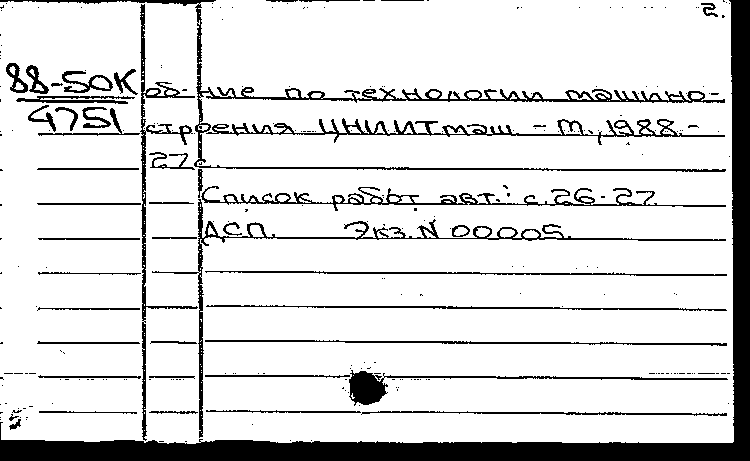 2.
88-50К об-ние по технологии машино-
4751 строения ЦНИИТмаш - М., 1988.-
27 с.
Список работ авт.: с. 26-27
ДСП. Экз. N 00005.
5